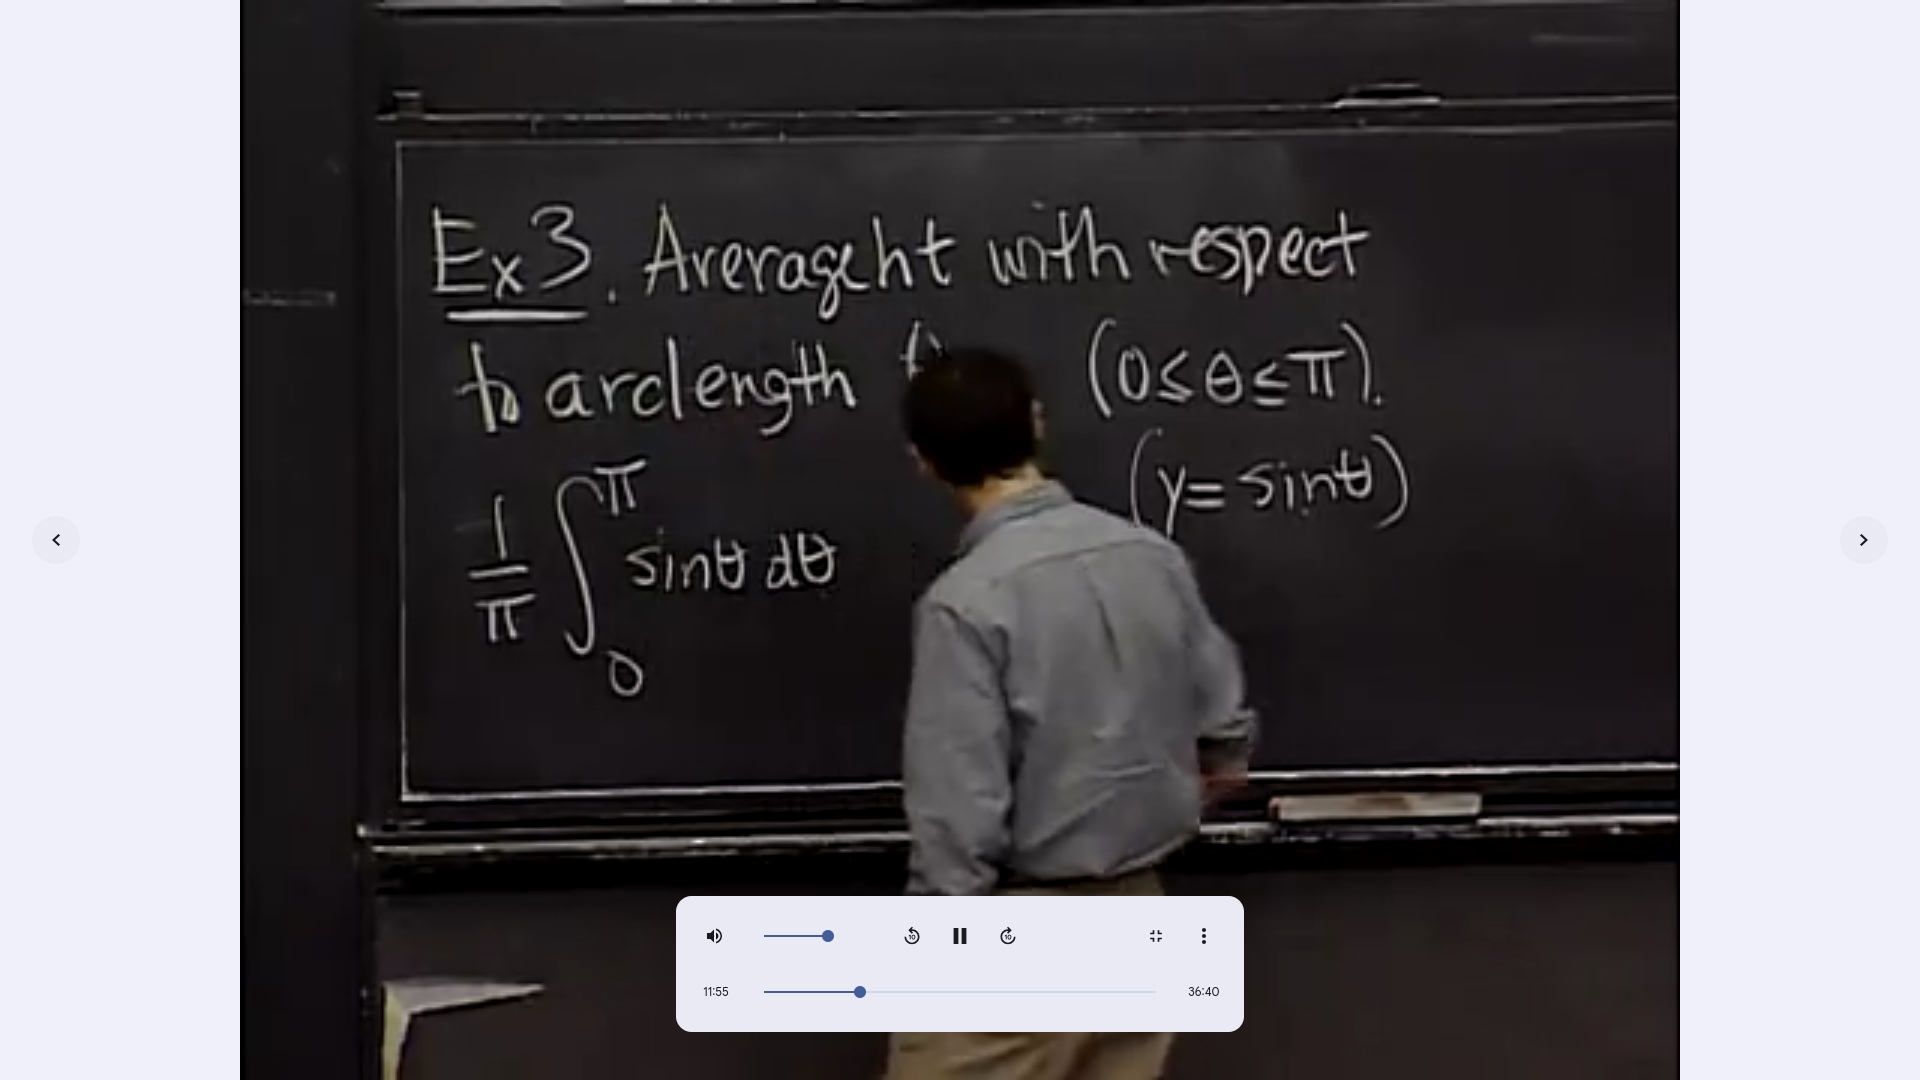 Ex 3. Average ht with respect
to arclength (0≤θ≤π).
(y=sinθ)
1/π ∫₀^π sinθ dθ
10 10
11:55 36:40